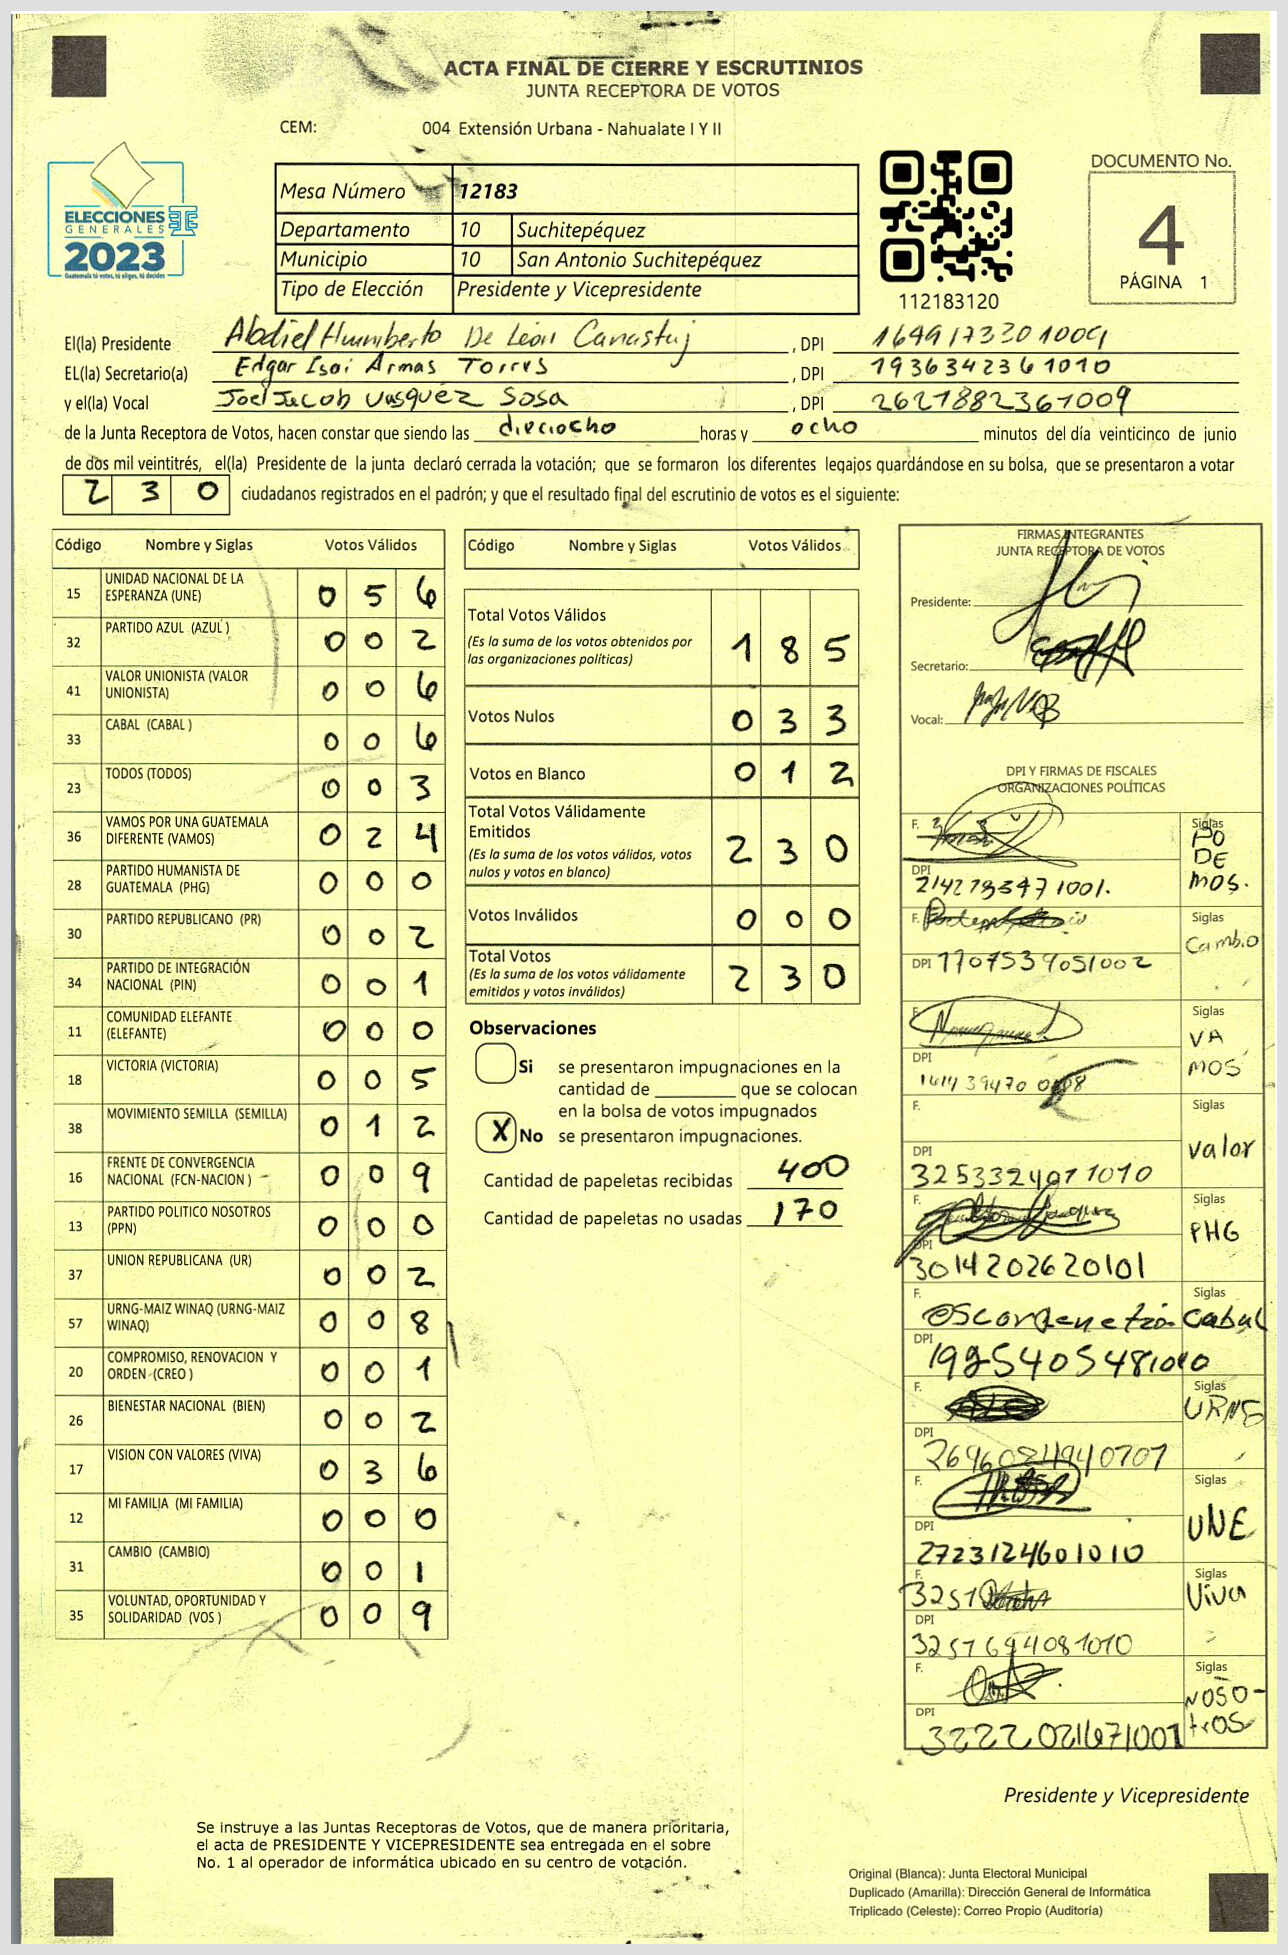 ACTA FINAL DE CIERRE Y ESCRUTINIOS
JUNTA RECEPTORA DE VOTOS
CEM: 004 Extensión Urbana - Nahualate I Y II
ELECCIONES
GENERALES
2023
Guatemala tú votas, tú eliges, tú decides
Mesa Número 12183
Departamento 10 Suchitepéquez
Municipio 10 San Antonio Suchitepéquez
Tipo de Elección Presidente y Vicepresidente
112183120
DOCUMENTO No.
4
PÁGINA 1
El(la) Presidente Abdiel Humberto De León Canastuj , DPI 1649173301009
EL(la) Secretario(a) Edgar Isaí Armas Torres , DPI 1936342361010
y el(la) Vocal Joel Jacob Vasquéz Sosa , DPI 2621882361009
de la Junta Receptora de Votos, hacen constar que siendo las dieciocho horas y ocho minutos del día veinticinco de junio
de dos mil veintitrés, el(la) Presidente de la junta declaró cerrada la votación; que se formaron los diferentes legajos guardándose en su bolsa, que se presentaron a votar
230 ciudadanos registrados en el padrón; y que el resultado final del escrutinio de votos es el siguiente:
Código Nombre y Siglas Votos Válidos
15 UNIDAD NACIONAL DE LA ESPERANZA (UNE) 0 5 6
32 PARTIDO AZUL (AZUL ) 0 0 2
41 VALOR UNIONISTA (VALOR UNIONISTA) 0 0 6
33 CABAL (CABAL ) 0 0 6
23 TODOS (TODOS) 0 0 3
36 VAMOS POR UNA GUATEMALA DIFERENTE (VAMOS) 0 2 4
28 PARTIDO HUMANISTA DE GUATEMALA (PHG) 0 0 0
30 PARTIDO REPUBLICANO (PR) 0 0 2
34 PARTIDO DE INTEGRACIÓN NACIONAL (PIN) 0 0 1
11 COMUNIDAD ELEFANTE (ELEFANTE) 0 0 0
18 VICTORIA (VICTORIA) 0 0 5
38 MOVIMIENTO SEMILLA (SEMILLA) 0 1 2
16 FRENTE DE CONVERGENCIA NACIONAL (FCN-NACION ) 0 0 9
13 PARTIDO POLITICO NOSOTROS (PPN) 0 0 0
37 UNION REPUBLICANA (UR) 0 0 2
57 URNG-MAIZ WINAQ (URNG-MAIZ WINAQ) 0 0 8
20 COMPROMISO, RENOVACION Y ORDEN (CREO ) 0 0 1
26 BIENESTAR NACIONAL (BIEN) 0 0 2
17 VISION CON VALORES (VIVA) 0 3 6
12 MI FAMILIA (MI FAMILIA) 0 0 0
31 CAMBIO (CAMBIO) 0 0 1
35 VOLUNTAD, OPORTUNIDAD Y SOLIDARIDAD (VOS ) 0 0 9
Código Nombre y Siglas Votos Válidos
Total Votos Válidos 1 8 5
(Es la suma de los votos obtenidos por
las organizaciones políticas)
Votos Nulos 0 3 3
Votos en Blanco 0 1 2
Total Votos Válidamente
Emitidos 2 3 0
(Es la suma de los votos válidos, votos
nulos y votos en blanco)
Votos Inválidos 0 0 0
Total Votos 2 3 0
(Es la suma de los votos válidamente
emitidos y votos inválidos)
Observaciones
Si se presentaron impugnaciones en la
cantidad de ________ que se colocan
en la bolsa de votos impugnados
X No se presentaron impugnaciones.
Cantidad de papeletas recibidas 400
Cantidad de papeletas no usadas 170
FIRMAS INTEGRANTES
JUNTA RECEPTORA DE VOTOS
Presidente:
Secretario:
Vocal:
DPI Y FIRMAS DE FISCALES
ORGANIZACIONES POLÍTICAS
F. Siglas PODEMOS.
DPI
F. Siglas Cambio
DPI
F. Siglas VAMOS
DPI
F. Siglas valor
DPI 3253324071010
F. Siglas PHG
DPI 3014202620101
F. Siglas Cabal
DPI 1925405481010
F. Siglas URNG
DPI
F. Siglas UNE
DPI 2723124601010
F. 3251 Siglas Viva
DPI 3251694081010
F. Siglas NOSOTROS
DPI 3222021671001
Presidente y Vicepresidente
Se instruye a las Juntas Receptoras de Votos, que de manera prioritaria,
el acta de PRESIDENTE Y VICEPRESIDENTE sea entregada en el sobre
No. 1 al operador de informática ubicado en su centro de votación.
Original (Blanca): Junta Electoral Municipal
Duplicado (Amarilla): Dirección General de Informática
Triplicado (Celeste): Correo Propio (Auditoría)